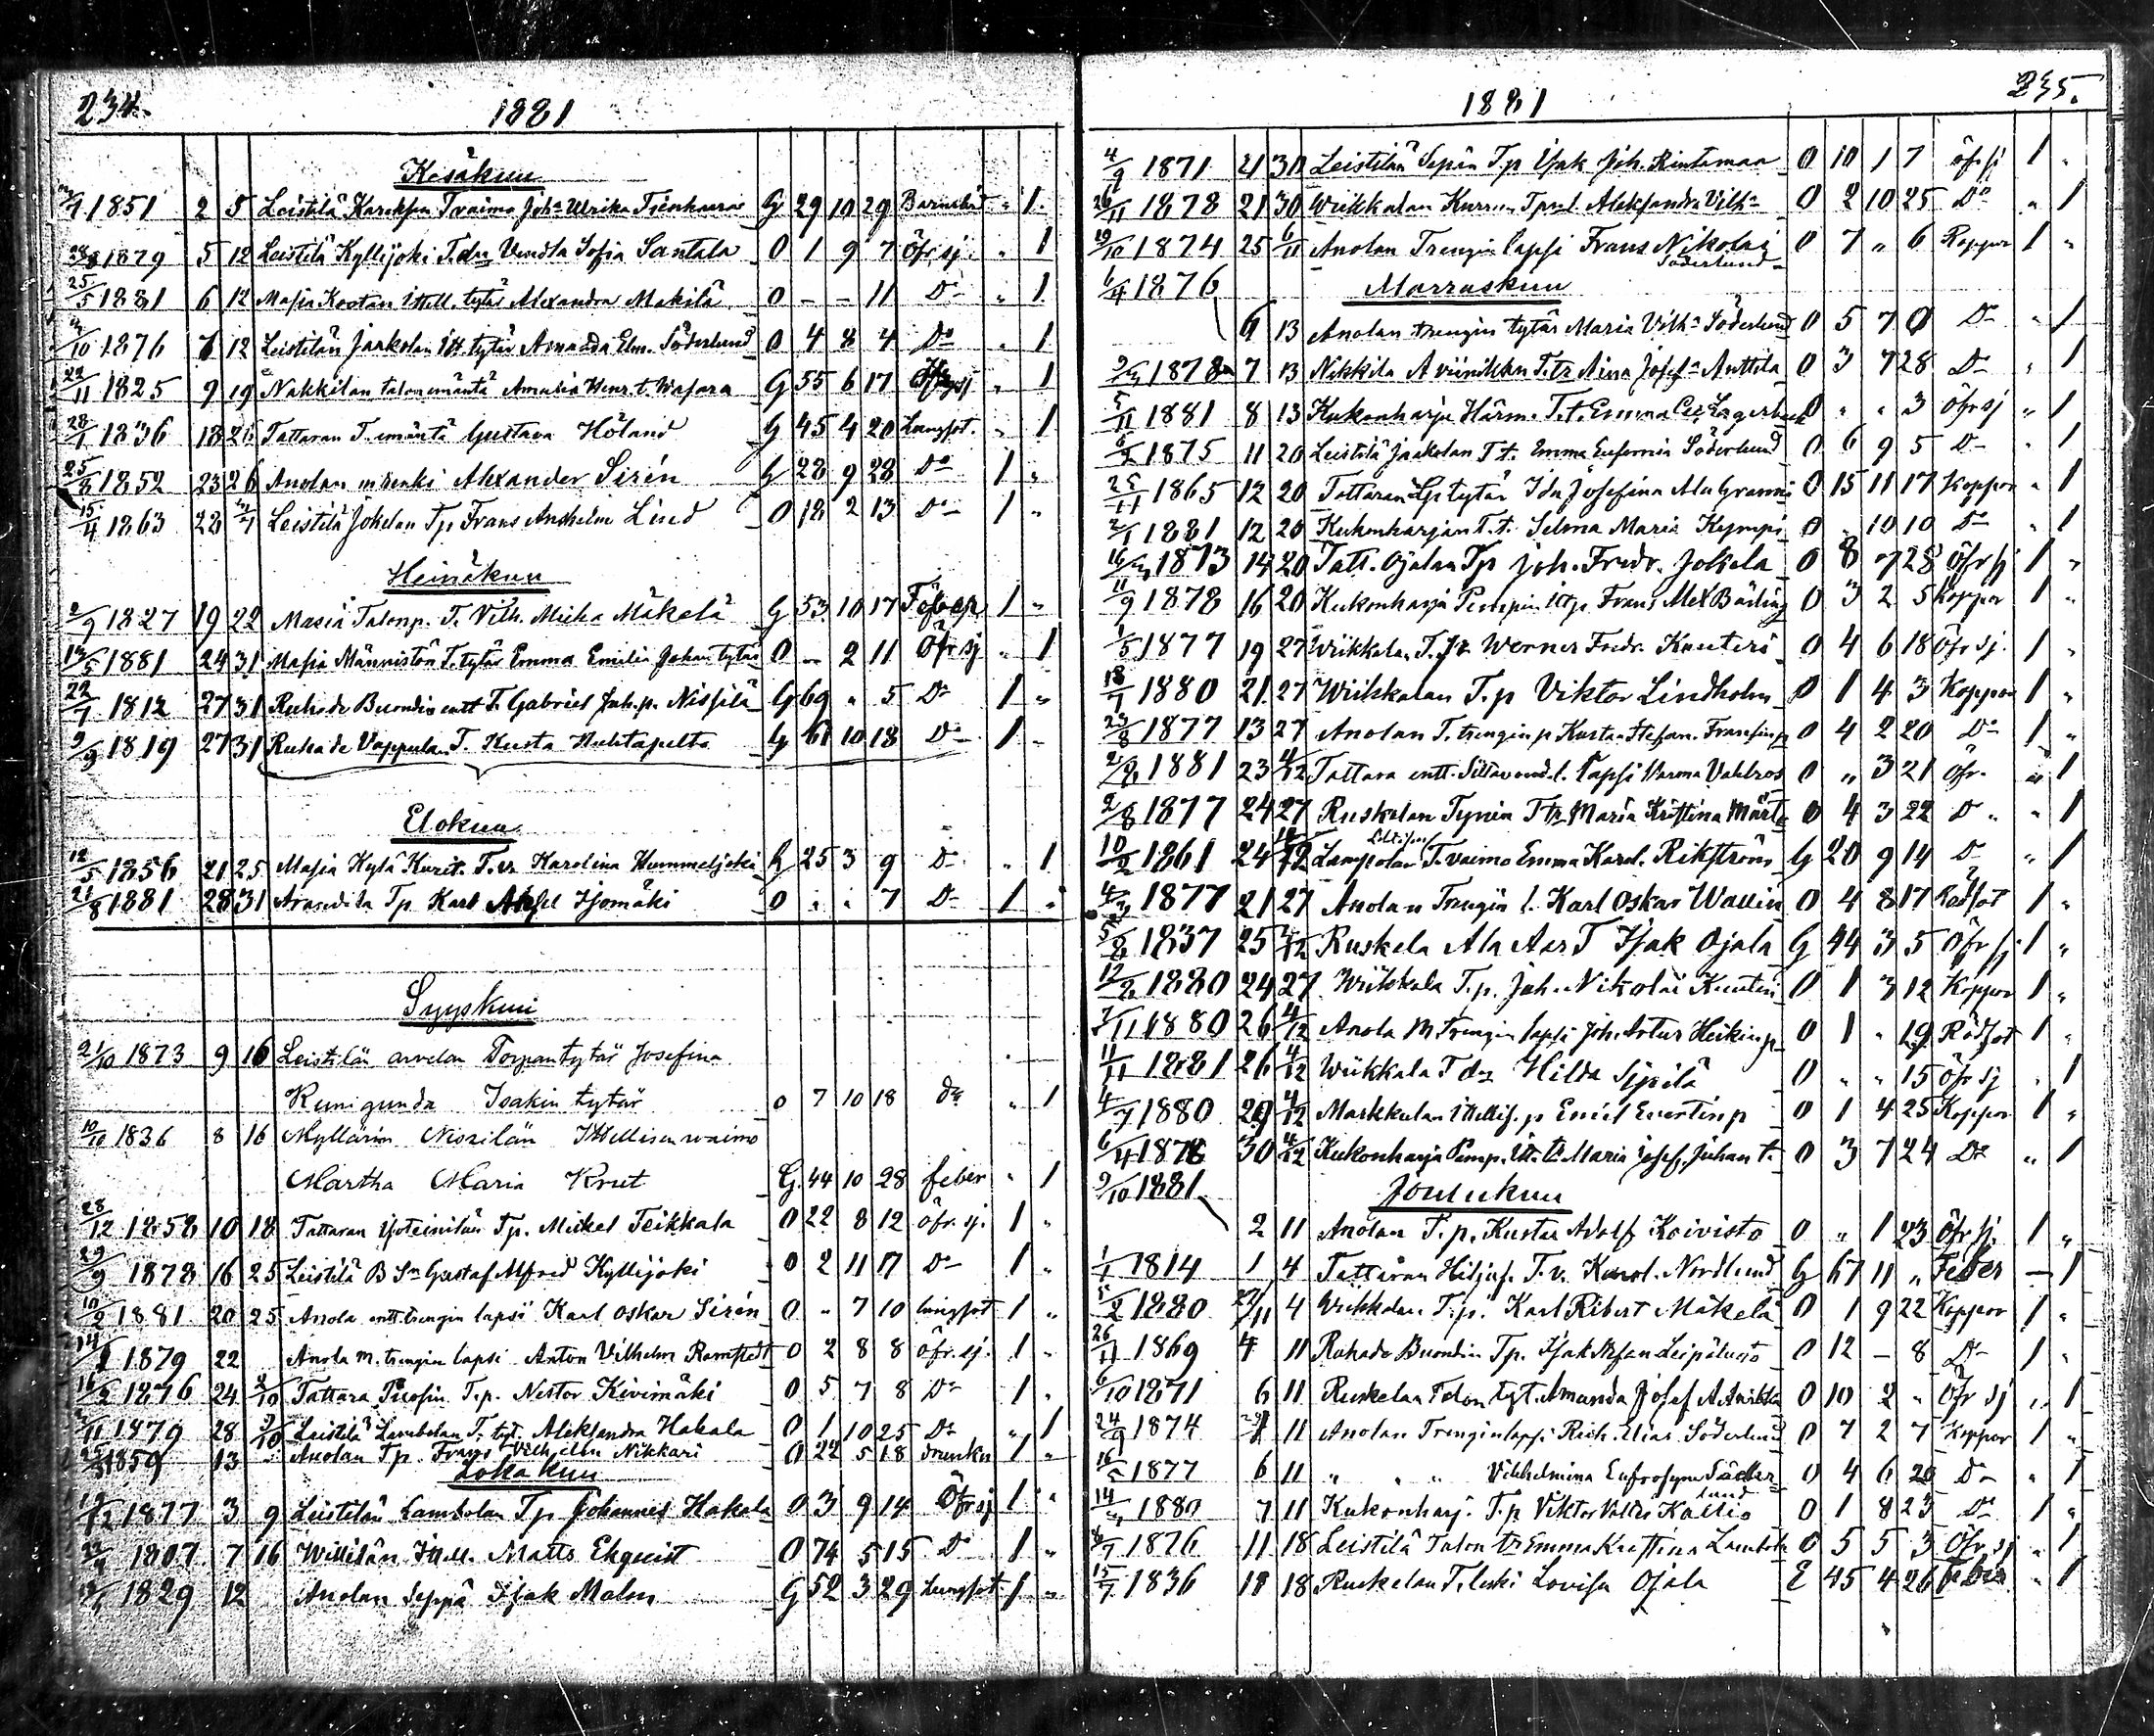 234.
1881
Kesäkuu
1851 2 5 Leistilä Karckpn Tvaimo Joh:a Ulrika Tienhaara G 29 10 29 Barnsbörd " 1.
1879 5 12 Leistilä Kyllijoki T.dr Vendla Sofia Santala O 1 9 7 Öfr.sj. " 1
25/5 1881 6 12 Masia Itsell. tytär Alexandra Mäkilä O - - 11 Do " 1
1876 7 12 Leistilän Jaakolan Itt. tytär Amanda Elm. Söderlund O 4 8 4 Do " 1
22/11 1825 9 19 Nakkilan talon emäntä Amalia Henr. t. G 55 6 17 " 1
28/1 1836 18 26 Tattaran T. emäntä Gustava Höland G 45 4 20 Lungsot. " 1
25/8 1852 23 26 Anolan m renki Alexander Sirén G 28 9 28 Do 1 "
15/4 1863 28 Leistilä Jokelan Tp Frans Anshelm Lind O 18 2 13 Do 1 "
Heinäkuu
2/9 1827 19 22 Masia Talonp. T. Vilh. Mäkelä G 53 10 17 1 "
13/5 1881 24 31 Masia Männistön T. tytär Emma Emilia Juhan tytär O - 2 11 Öfr sj " 1
22/7 1812 27 31 Ruhade Buondis entt T. Gabriel Juh. p. Nissilä G 69 " 5 Do 1 "
9/9 1819 27 31 Ruhade Vappulan T. Kusta Huhtapelto G 61 10 18 Do 1 "
Elokuu
12/5 1856 21 25 Masia Kylä T. vr Karolina Hummeljoki G 25 3 9 Do " 1
21/8 1881 28 31 Tp Karl Aksel Isomäki O " " 7 Do 1 "
Syyskuu
21/10 1873 9 16 Leistilän arvelan Torpantytär Josefina
Kunigunda Isakin tytär o 7 10 18 do " 1
10/10 1836 8 16 Myllärin Nissilän Ittellisen vaimo
Martha Maria Krut G. 44 10 28 feber " 1
28/12 1858 10 18 Tattaran Tp. Mickel Teikkala O 22 8 12 öfr.sj. 1 "
29/9 1878 16 25 Leistilä B Sn Gustaf Alfred Kyllijoki O 2 11 17 Do 1 "
10/2 1881 20 25 Anola entt. trengin lapsi Karl Oskar Sirén O " 7 10 lungsot 1 "
14/1 1879 22 Anola m. trengin lapsi Anton Vilhelm Ramstedt O 2 8 8 öfr.sj. 1 "
16/2 1876 24 8/10 Tattara T.p. Nestor Kivimäki O 5 7 8 Do 1 "
1879 28 9/10 Leistilä Lambolan T. tyt. Aleksandra Hakala O 1 10 25 Do " 1
1859 13 Anolan Tp. Frans Vilhelm Nikkari O 22 5 18 drunkn 1 "
Lokakuu
1877 3 9 Leistilän Lambolan Tp Johannes Hakala O 3 9 14 Öfr sj 1 "
1807 7 16 Willilän Ittell. Matts Ekqvist O 74 5 15 Do 1 "
1829 12 Anolan Seppä Isak Malm G 52 3 29 Lungsot. 1 "
235.
1881
4/9 1871 21 30 Leistilän Sepän T.p Isak Joh. Rintamaa O 10 1 7 öfr sj 1 "
26/11 1878 21 30 Wiikkalan Aleksandra Vilh:a O 2 10 25 Do " 1
19/10 1874 25 6/11 Anolan Trengin lapsi Frans Nikolai O 7 " 6 Koppor 1 "
Söderlund
6/4 1876
Marraskuu
6 13 Anolan trengin tytär Maria Vilh:a Söderlund O 5 7 0 Do " 1
1878 7 13 Nikkila T. tr Aina Josef:a Anttila O 3 7 28 Do " 1
5/11 1881 8 13 Kukonharja Härm. T.t. Emma Lagerbäck O " " 3 Öfr sj " 1
6/2 1875 11 20 Leistilä Jaakolan T t. Emma Eufemia Söderlund O 6 9 5 Do " 1
25/11 1865 12 20 Tattaran tytär Ida Josefina Malgranni O 15 11 17 Koppor " 1
2/1 1881 12 20 Kukonharjan T.t. Selma Maria Kymppi O " 10 10 Do " 1
16/3 1873 14 20 Tatt. Ojalan Tp Joh. Fredr. Jokela O 8 7 28 Öfr sj 1 "
11/9 1878 16 20 Kukonharja Pimpin Ittp. Frans Alex Bärling O 3 2 5 Koppor 1 "
1/5 1877 19 27 Wiikkala T. Werner Fredr. Kunteri O 4 6 18 Öfr sj. 1 "
18/7 1880 21 27 Wiikkalan T.p Viktor Lindholm O 1 4 3 Koppor 1 "
23/8 1877 13 27 Anolan T. trengin p Kusta Stefan. Fransinp O 4 2 20 Do 1 "
2/8 1881 23 4/12 Tattara entt. lapsi Varma Vahlros O " 3 21 Öfr. " 1
2/8 1877 24 27 Ruskelan Tynin T tr Maria Kristina Märt O 4 3 22 D " " 1
10/2 1861 24 Lampolan T. vaimo Emma Karol. Rikström G 20 9 14 Do " 1
4/3 1877 21 27 Anolan Trengin l. Karl Oskar Wallin O 4 8 17 Rödsot 1 "
5/8 1837 25 Ruskela Ala Aer T Isak Ojala G 44 3 5 Öfr sj. 1 "
12/8 1880 24 27 Wiikkala T.p. Joh. Nikolai Kunteri O 1 3 12 Koppor 1 "
7/11 1880 26 4/12 Anola M. trengin lapsi Joh. Artur Heikinp O 1 " 19 Rödsot 1 "
11/11 1881 26 4/12 Wiikkala T dr Hilda Sipilä O " " 15 Öfr sj " 1
4/7 1880 29 4/12 Markkulan Ittellis. p Emil Evertinp O 1 4 25 Koppor 1 "
6/4 1878 30 4/12 Kukonharja Pimp. Itt. t. Maria Josef. Juhan t. O 3 7 24 Do " 1
9/10 1881
Joulukuu
2 11 Anolan T. p. Kustaa Adolf Koivisto O " 1 23 Öfr sj. 1 "
1/1 1814 1 4 Tattaran T. v. Karol. Nordlund G 67 11 " Feber - 1
5/2 1880 27/11 4 Wiikkalan T. p. Karl Ribert Mäkelä O 1 9 22 Koppor 1 "
26/11 1869 4 11 Ruhade Buondin Tp. Isak Stefan Leipäluoto O 12 - 8 Do 1 "
6/10 1871 6 11 Ruskelan Talon tyt. Amanda Josef A O 10 2 " Öfr sj " 1
24/9 1874 11 Anolan Trengin lapsi Rich. Elias Söderlund O 7 2 7 Koppor 1 "
16/5 1877 6 11 " " " Vilhelmina Eufrosyna Söder O 4 6 20 Do " 1
lund
14/3 1880 7 11 Kukonharj. T.p Viktor Kallio O 1 8 23 Do 1 "
8/7 1876 11 18 Leistilä Talon tr Emma Kristina Lambola O 5 5 3 Öfr sj " 1
15/7 1836 11 18 Ruskelan T. leski Lovisa Ojala E 45 4 26 Feber " 1